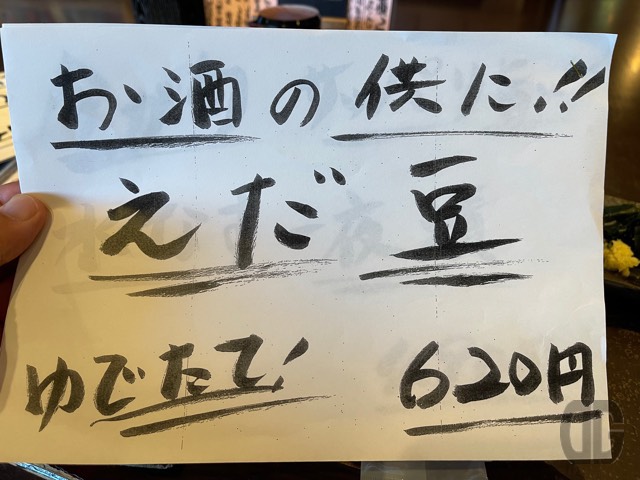 お酒の供に!!
えだ豆
ゆでたて! 620円